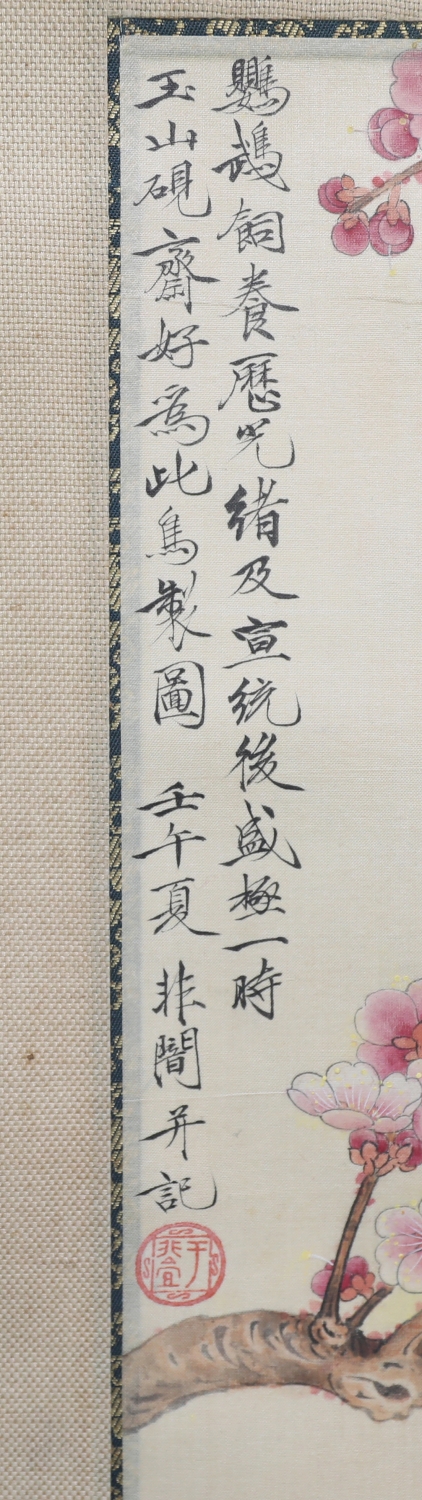 鸚鵡飼養歷光緒及宣統後盛極一時
玉山硯齋好為此鳥製圖 壬午夏 非闇并記
于非